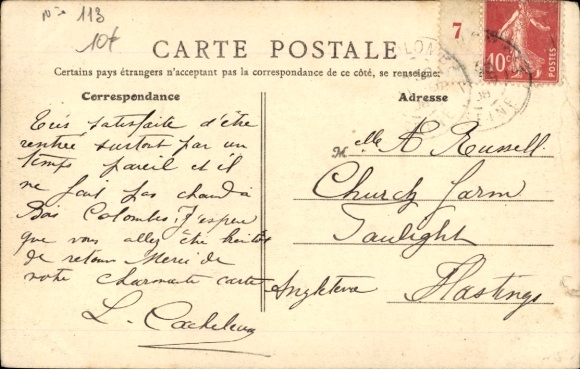 N° 113
10f
7
10c
POSTES
CARTE POSTALE
Certains pays étrangers n'acceptent pas la correspondance de ce côté, se renseigner.
Correspondance
Très satisfaite d'être
rentrée surtout par un
temps pareil et il
ne fait pas chaud à
Bois Colombes. J'espère
que vous allez être
de retour Merci de
votre charmante carte
L.
Adresse
Melle A Russell
Church Farm
Angleterre Hastings